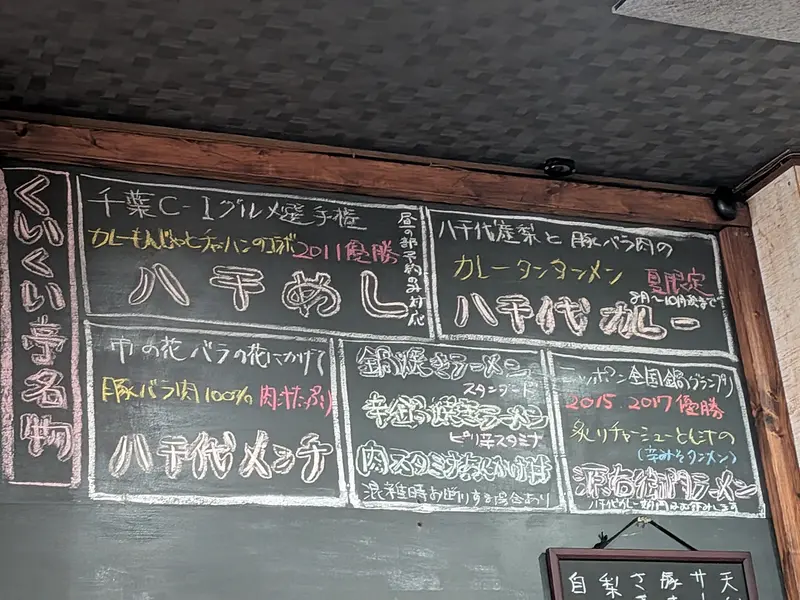 くいくい亭名物
千葉C-1グルメ選手権
カレーもんじゃとチャーハンのコラボ 2011優勝
八千めし
昼の部予約のみ対応
八千代産梨と豚バラ肉の
カレータンタンメン
夏限定
8月〜10月頃まで
八千代カレー
市の花 バラの花にかけて
豚バラ肉100% 肉汁たっぷり
八千代メンチ
鍋焼きラーメン
スタンダード
辛鍋焼きラーメン
ピリ辛スタミナ
肉スタミナあんかけ
混雑時お断りする場合あり
ニッポン全国鍋グランプリ
2015.2017優勝
炙りチャーシューとん汁の
(辛みそタンメン)
源右衛門ラーメン
八千代カレー期間はお休みします
天
サ
豚
さ
梨
自